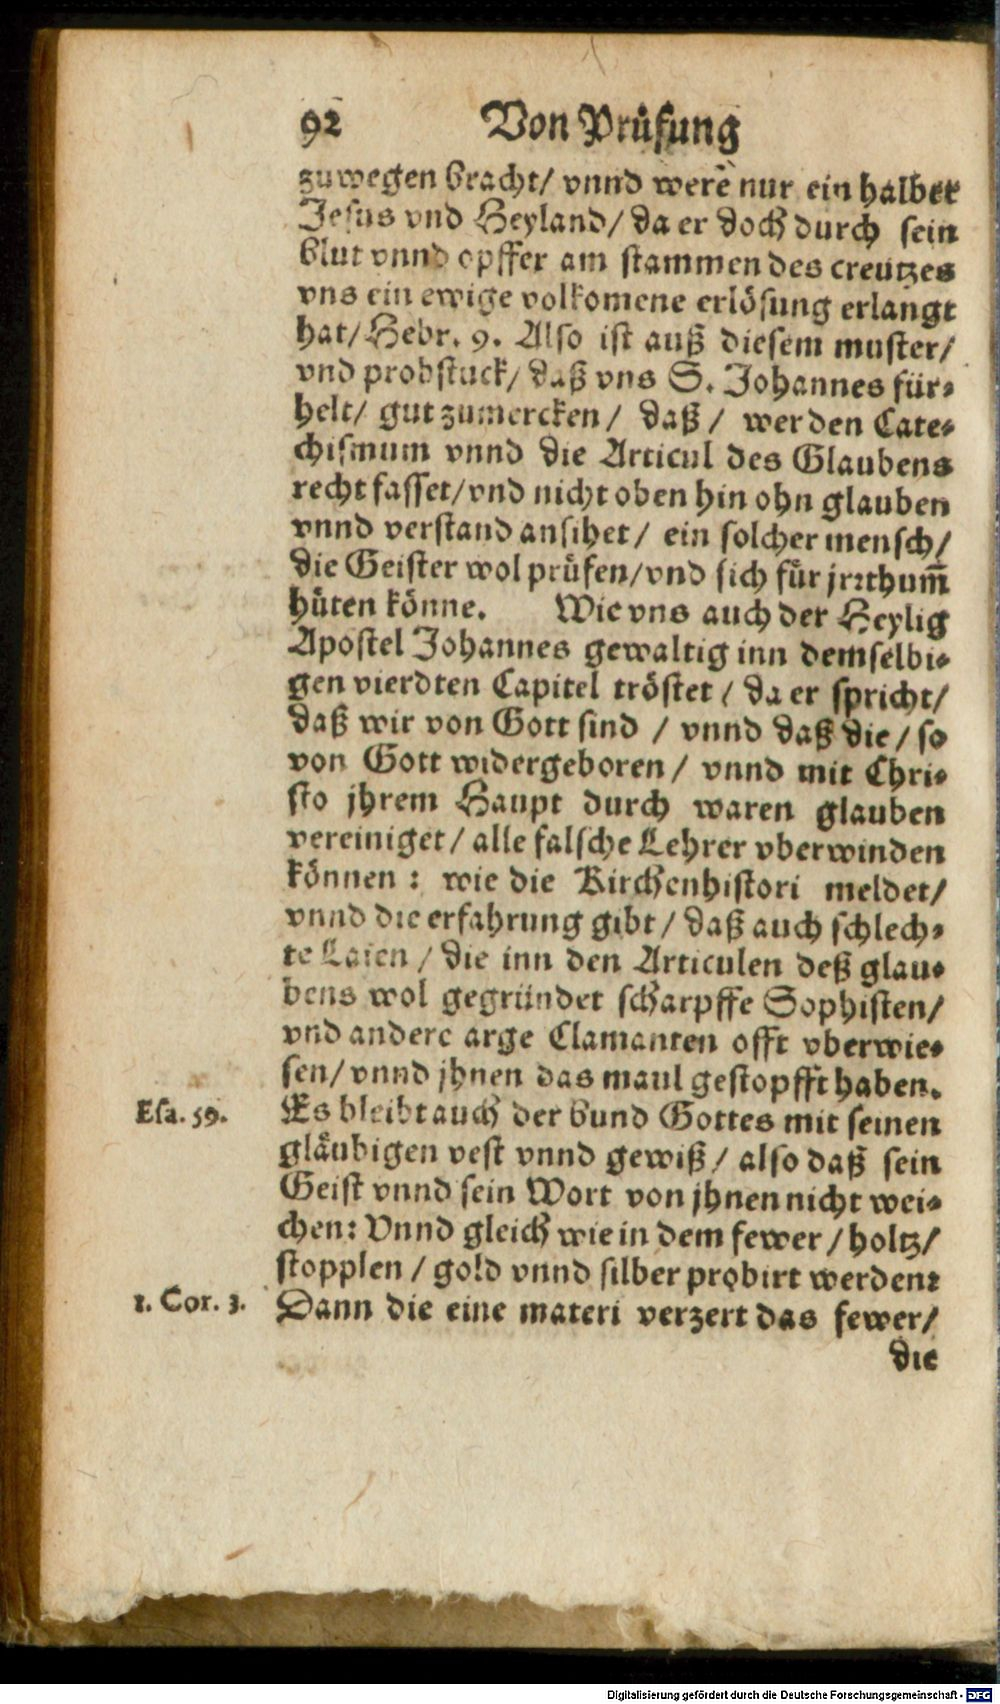 92 Von Prüfung
zuwegen bracht/ vnnd were nur ein halber
Jesus vnd Heyland/ da er doch durch sein
blut vnnd opffer am stammen des creutzes
vns ein ewige volkomene erlösung erlangt
hat/ Hebr. 9. Also ist auß diesem muster/
vnd probstuck/ daß vns S. Johannes für-
helt/ gut zumercken/ daß/ wer den Cate-
chismum vnnd die Articul des Glaubens
recht fasset/ vnd nicht oben hin ohn glauben
vnnd verstand ansihet/ ein solcher mensch/
die Geister wol prüfen/ vnd sich für jrrthum̄
hüten könne. Wie vns auch der Heylig
Apostel Johannes gewaltig inn demselbi-
gen vierdten Capitel tröstet/ da er spricht/
daß wir von Gott sind / vnnd daß die/ so
von Gott widergeboren/ vnnd mit Chri-
sto jhrem Haupt durch waren glauben
vereiniget/ alle falsche Lehrer vberwinden
können: wie die Kirchenhistori meldet/
vnnd die erfahrung gibt/ daß auch schlech-
te Laien/ die inn den Articulen deß glau-
bens wol gegründet scharpffe Sophisten/
vnd andere arge Clamanten offt vberwie-
sen/ vnnd jhnen das maul gestopfft haben.
Esa. 59. Es bleibt auch der bund Gottes mit seinen
gläubigen vest vnnd gewiß/ also daß sein
Geist vnnd sein Wort von jhnen nicht wei-
chen: Vnnd gleich wie in dem fewer/ holtz/
stopplen/ gold vnnd silber probirt werden:
1. Cor. 3. Dann die eine materi verzert das fewer/
die
Digitalisierung gefördert durch die Deutsche Forschungsgemeinschaft - DFG